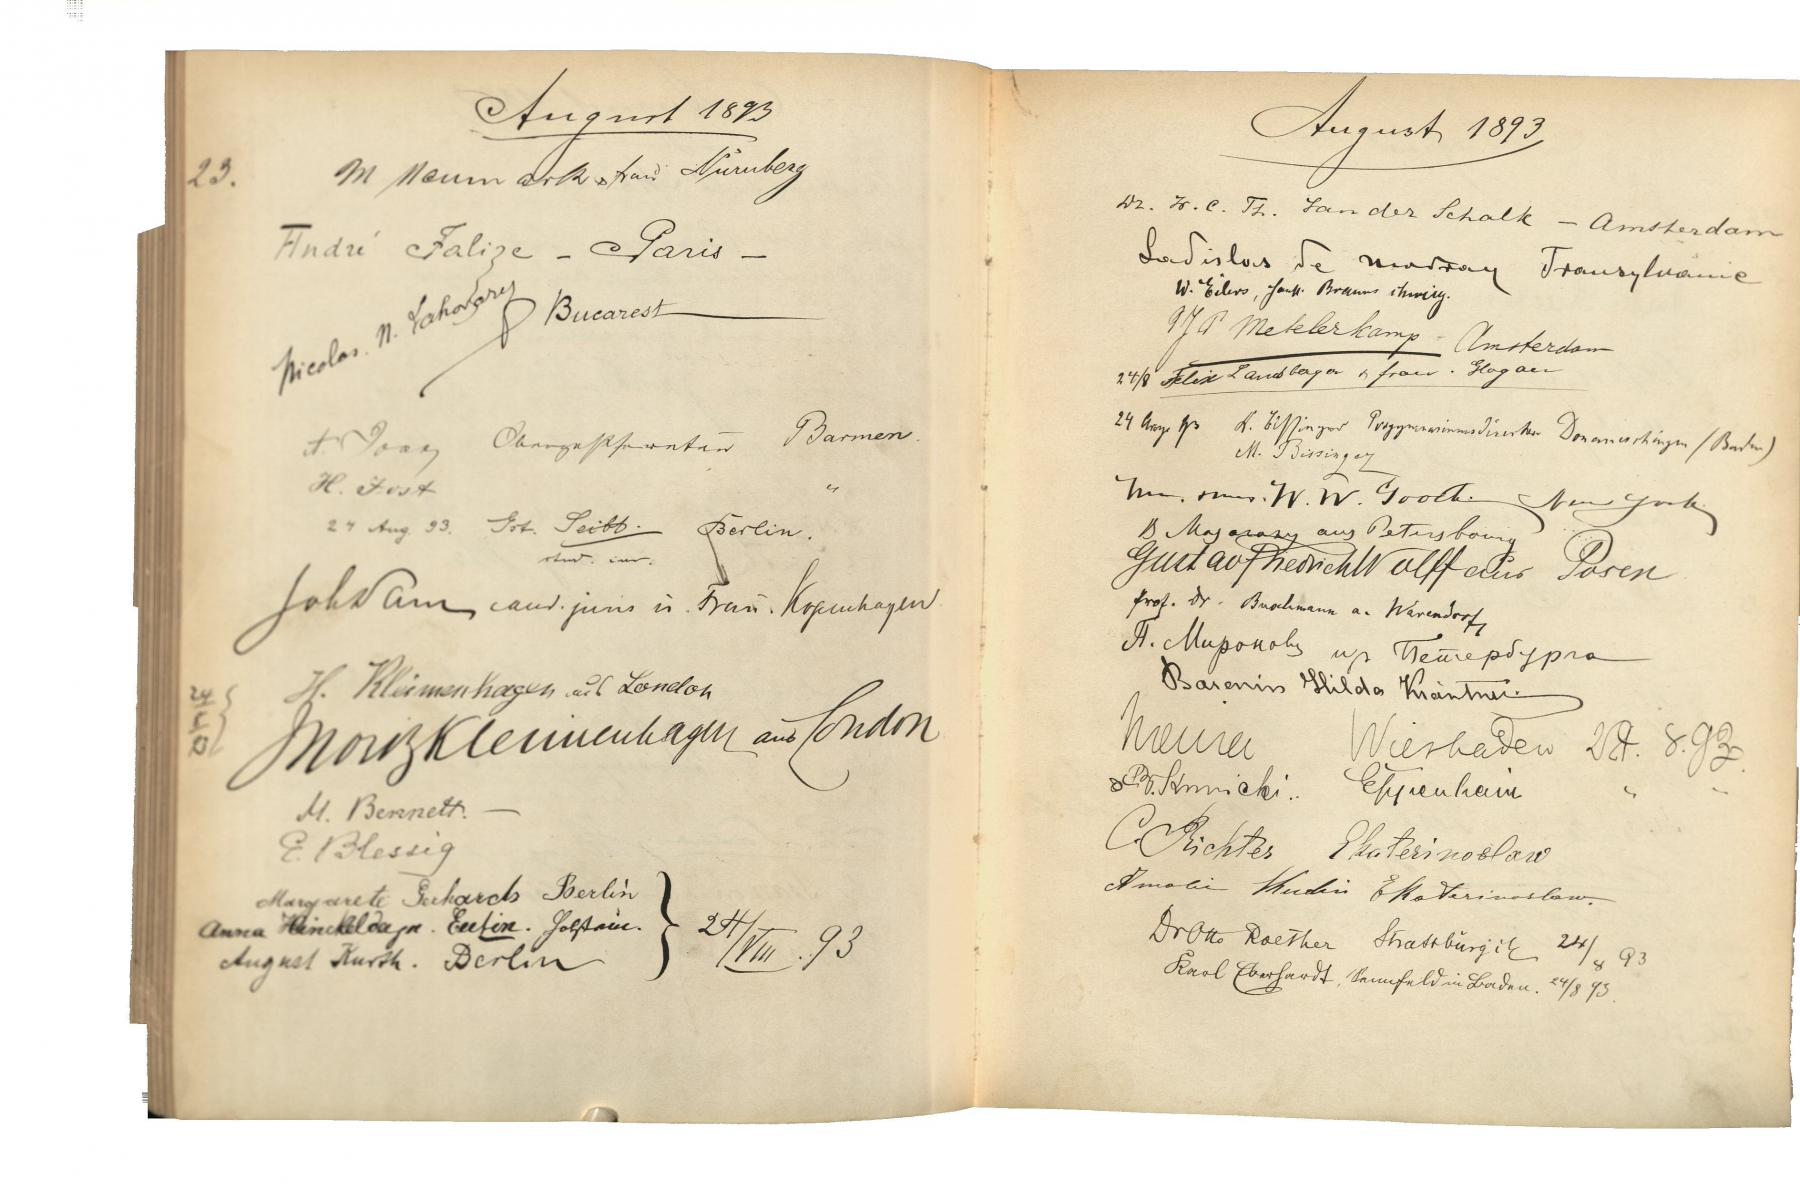 August 1893
23. M Neumark & frau Nürnberg
André Falize - Paris -
Nicolas. N. Lahovary Bucarest
Barmen.
H. Jost "
24 Aug. 93. Seibt. Berlin.
stud. iur.
cand. juris u. Frau. Kopenhagen
H. Klimenhagen aus London
Moritz Klemenhagen aus London
M. Bennett. -
E. Blessig
Margarete Gerhards Berlin
Anna Hinckeldeyn. Eutin. Holstein. 24/VIII. 93
August Kurth. Berlin
August 1893
Dr. H. C. Th. van der Schalk - Amsterdam
Ladislas de Transylvanie
W. Eilers, Braunschweig.
Metelerkamp - Amsterdam
24/8 Felix Landsberger & frau. Glogau
24 Aug 93 K. Bissinger Progymnasiumsdirektor Donaueschingen (Baden)
M. Bissinger
Mr. & Mrs. W. W. Gooch. New York.
aus Petersbourg
Gustav Friedrich Wolff aus Posen
Prof. Dr. Buschmann a. Warendorf
П. Мироновъ изъ Петербурга
Hilda
Wiesbaden 24. 8. 93.
Eppenhain " "
C. Richter Ekaterinoslaw
Amalie Ekaterinoslaw.
Dr Otto Roether Strassburg i/E 24/8 93
Karl Eberhardt, Sennfeld in Baden. 24/8 93.